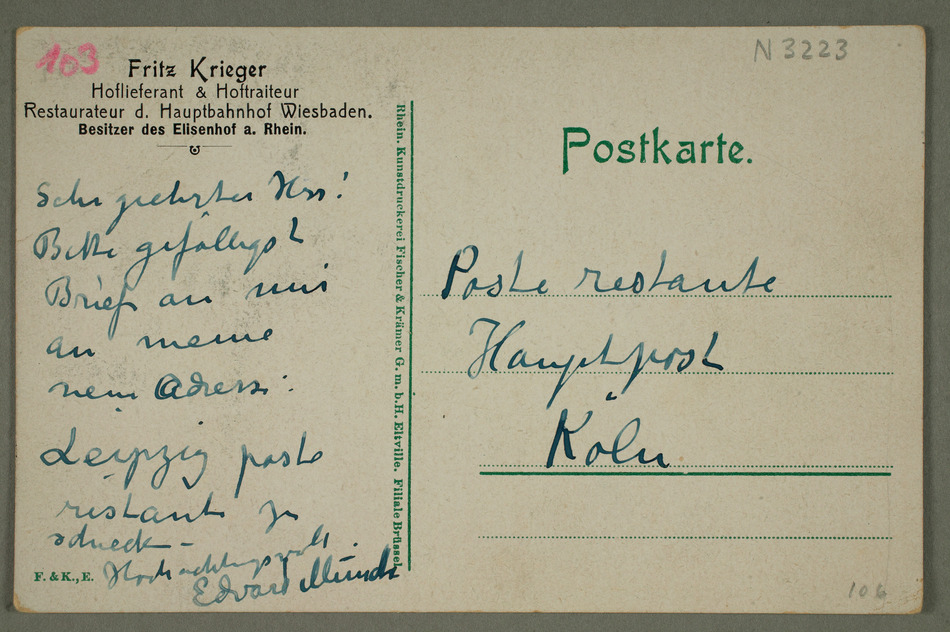 103
N 3223
Fritz Krieger
Hoflieferant & Hoftraiteur
Restaurateur d. Hauptbahnhof Wiesbaden.
Besitzer des Elisenhof a. Rhein.
Sehr geehrter Herr!
Bitte gefälligst
Briefe an mir
an meine
neue Adresse:
Leipzig poste
restante zu
schicken –
Hochachtungsvoll.
Edvard Munch
F. & K., E.
Rhein. Kunstdruckerei Fischer & Krämer G. m. b. H. Eltville. Filiale Brüssel.
Postkarte.
Poste restante
Hauptpost
Köln
106